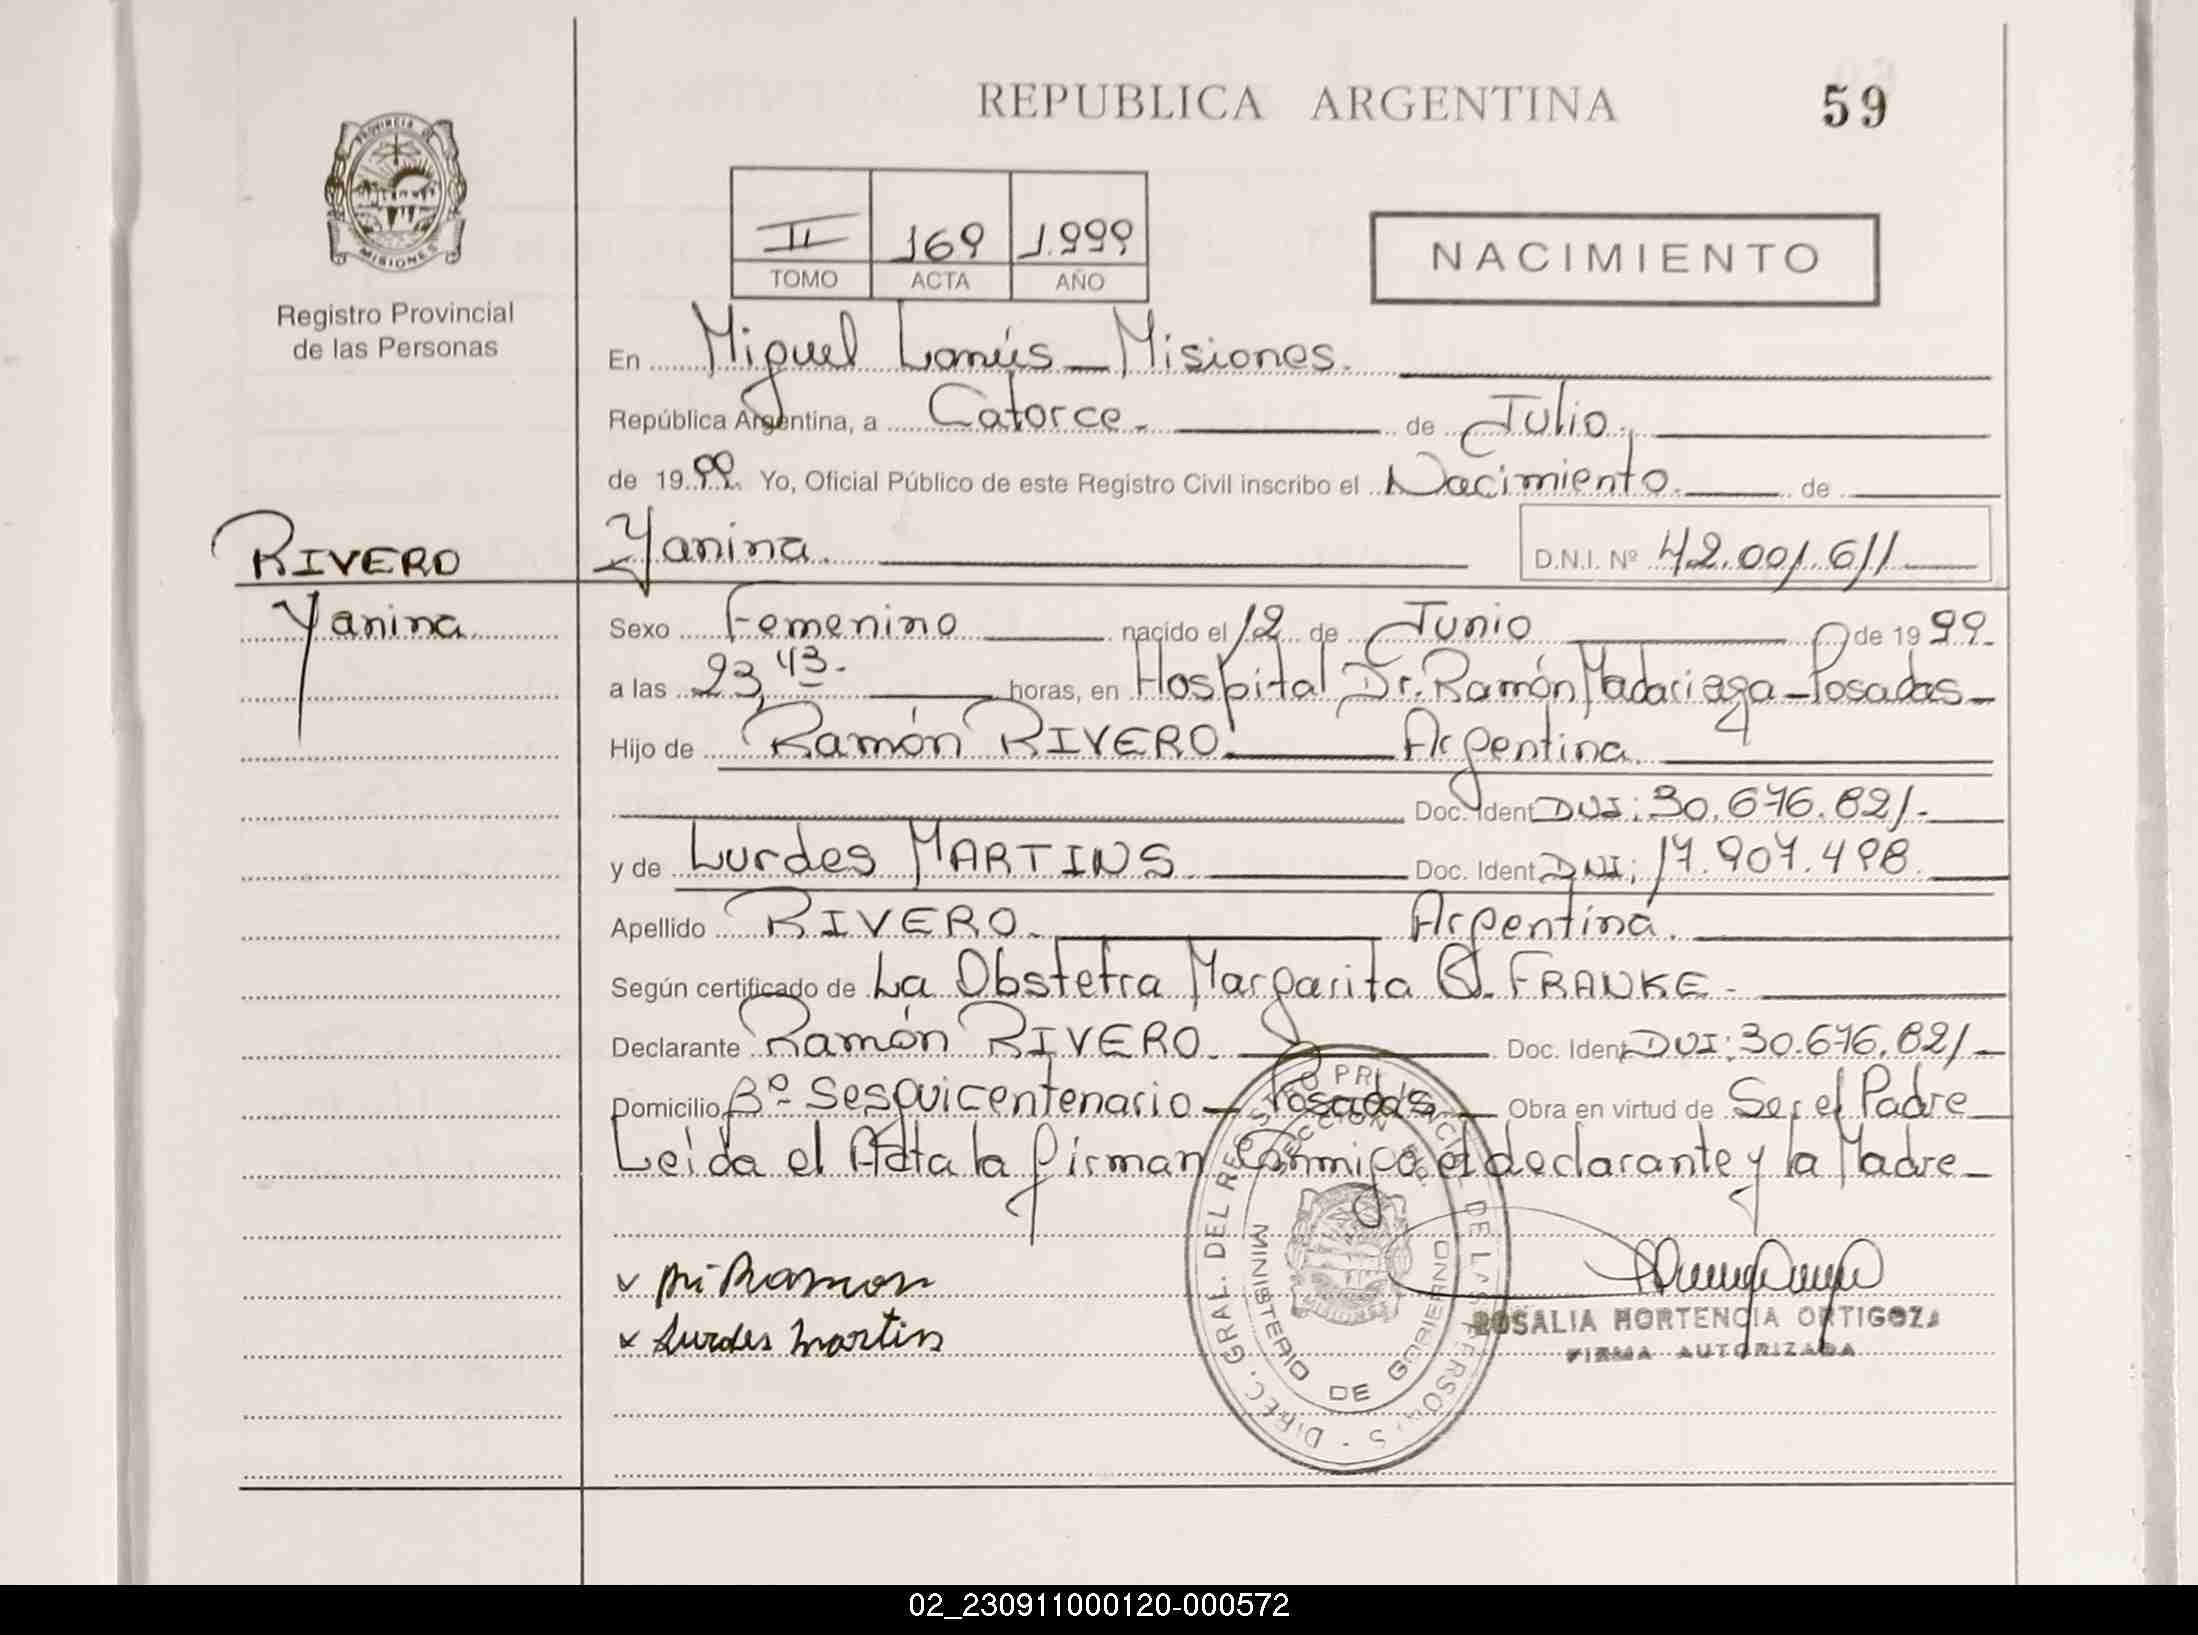 REPUBLICA ARGENTINA
59
PROVINCIA DE
MISIONES
Registro Provincial
de las Personas
II 169 1.999
TOMO ACTA AÑO
NACIMIENTO
En Miguel Lanús - Misiones.
República Argentina, a Catorce. de Julio.
de 1999. Yo, Oficial Público de este Registro Civil inscribo el Nacimiento. de
RIVERO
Yanina
Yanina. D.N.I. Nº 42.001.611
Sexo Femenino nacido el 12 de Junio de 1999.
a las 23,43.- horas, en Hospital Dr. Ramón Madariaga - Posadas -
Hijo de Ramón RIVERO. Argentina.
Doc. Ident DUI: 30.676.821.-
y de Lurdes MARTINS Doc. Ident DNI; 17.907.498.
Apellido RIVERO. Argentina.
Según certificado de La Obstetra Margarita B. FRANKE -
Declarante Ramón RIVERO. Doc. Ident DUI: 30.676.821 -
Domicilio Bº Sesquicentenario - Posadas - Obra en virtud de Ser el Padre
Leida el Acta la firman Conmigo el declarante y la Madre -
Ramon
x Lurdes Martin
DIREC. GRAL. DEL REGISTRO PROVINCIAL DE LAS PERSONAS
MINISTERIO DE GOBIERNO
ROSALIA HORTENCIA ORTIGOZA
FIRMA AUTORIZADA
02_230911000120-000572